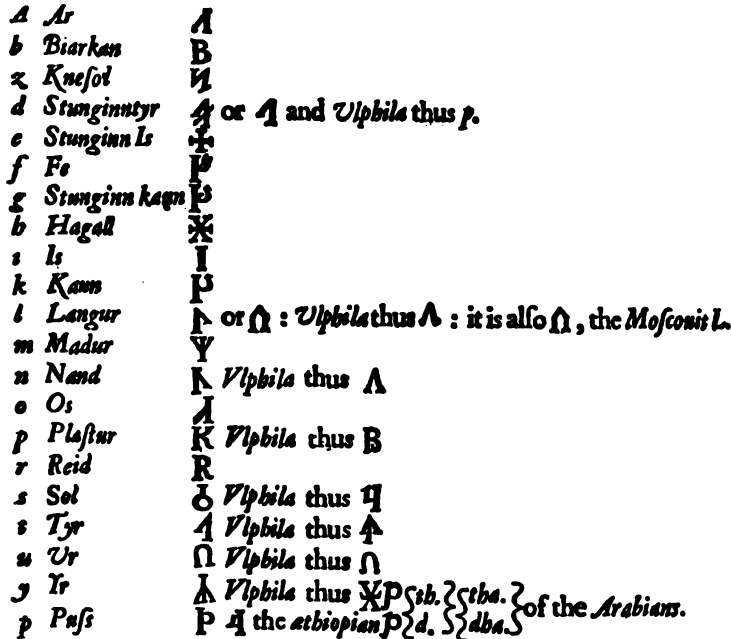 A Ar ᛆ
b Biarkan B
z Kneſol И
d Stunginntyr or and Ulphila thus p.
e Stunginn Is
f Fe ᚠ
g Stunginn kaun
h Hagall ᚼ
i Is I
k Kaun ᚴ
l Langur ᛚ or Ω : Ulphila thus Λ : it is alſo Ω, the Moſcouit L.
m Madur ᛘ
n Nand Vlphila thus Λ
o Os
p Plaſtur K Vlphila thus B
r Reid R
s Sol Vlphila thus
t Tyr Vlphila thus
u Ur Vlphila thus
y Yr ᛦ Vlphila thus
p Puſs Þ the æthiopian th. d. tha. dha. of the Arabians.